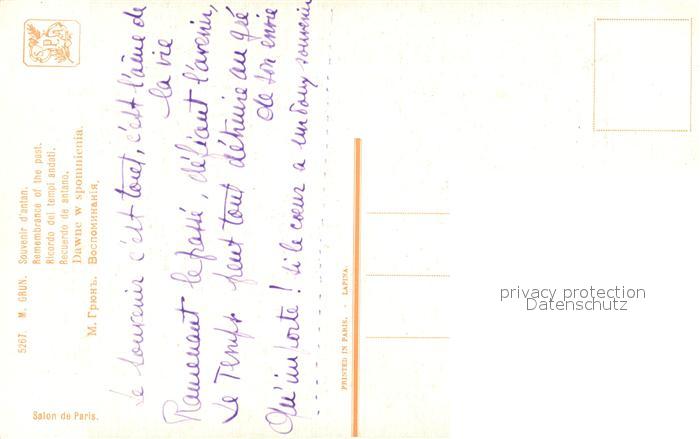 5267. M. GRUN. Souvenir d'antan.
Remembrance of the past.
Ricordo dei tempi andati.
Recuerdo de antano.
Dawne w spomnienia.
М. Грюнъ. Воспоминанія.
Salon de Paris.
Le souvenir c'est tout, c'est l'âme de
la vie
Ramenant le passé, défiant l'avenir,
Le Temps peut tout détruire au gré
de son envie
Qu'importe! si le cœur a un doux souvenir
PRINTED IN PARIS. - LAPINA.
privacy protection
Datenschutz